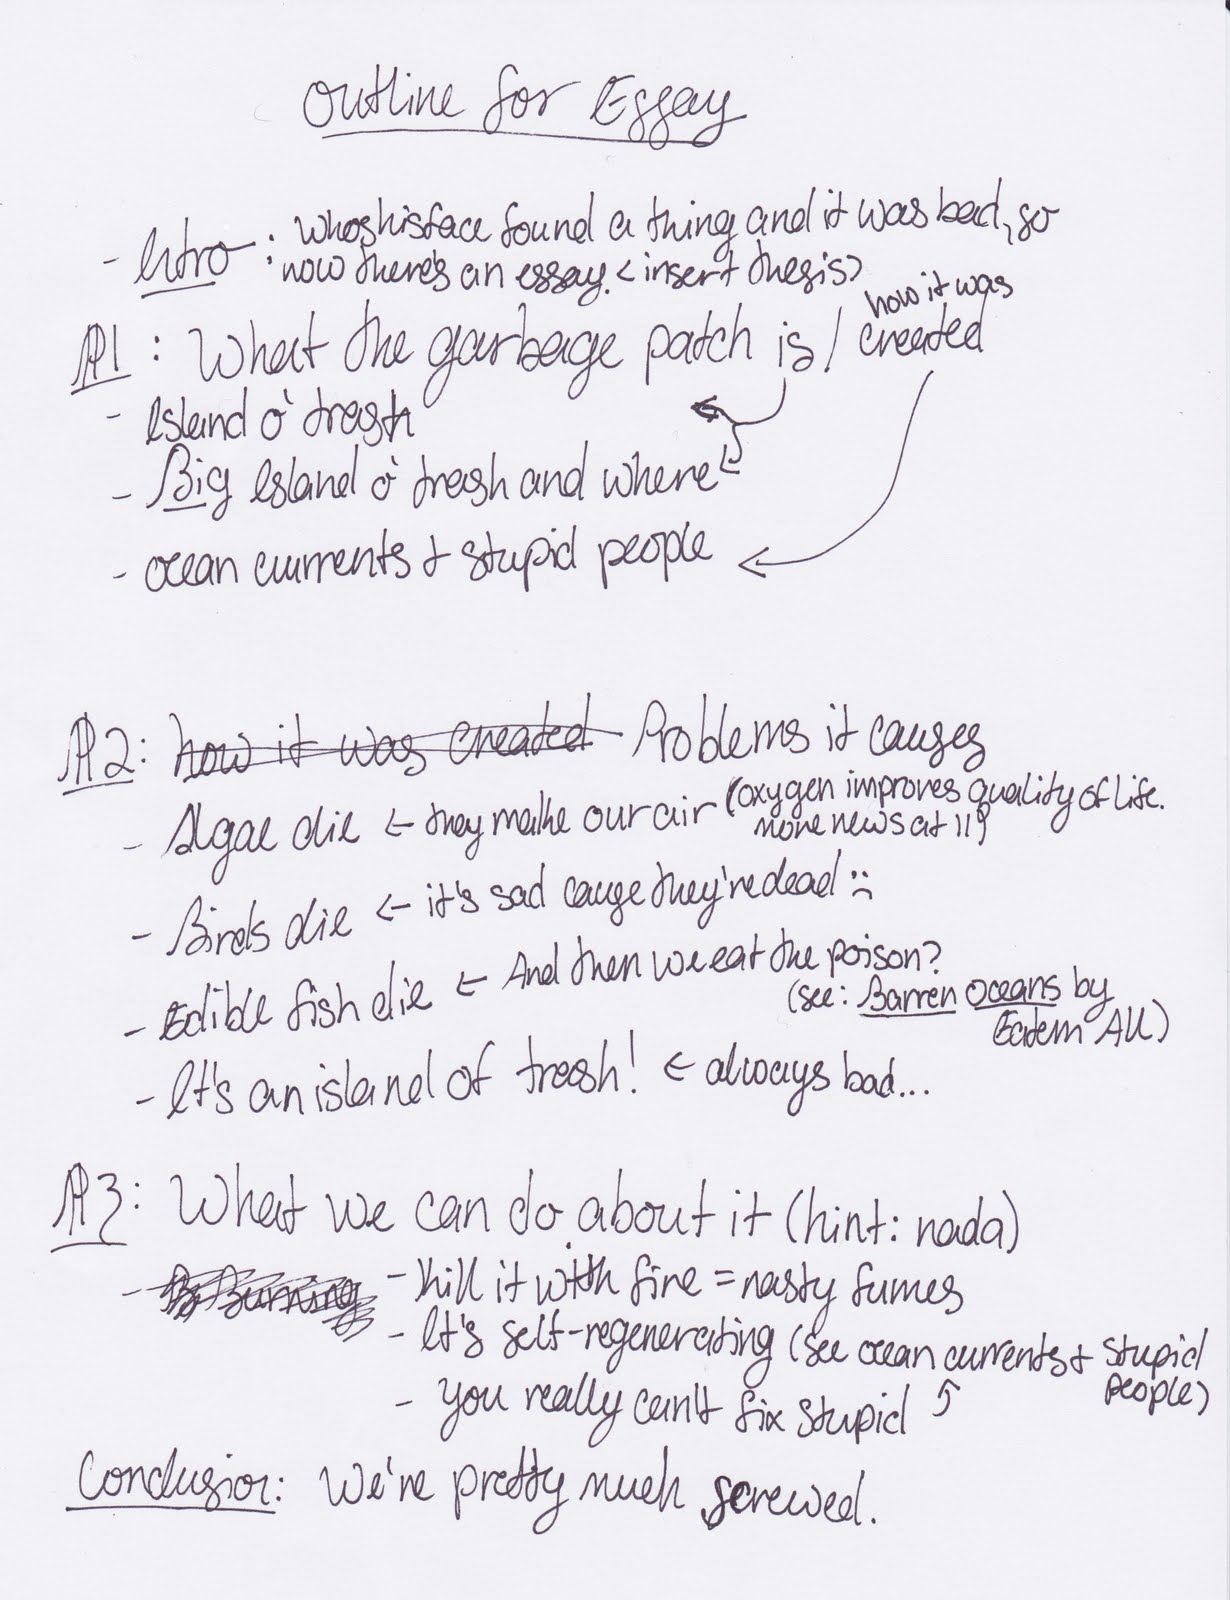 Outline for Essay
- Intro: Whoshisface found a thing and it was bad, so
now there's an essay. <insert thesis>
how it was
P1: What the garbage patch is / created
- Island o' trash
- Big Island o' trash and where
- ocean currents + stupid people
P2: how it was created Problems it causes
- Algae die ← they make our air (oxygen improves quality of life.
more news at 11)
- Birds die ← it's sad cause they're dead :(
- Edible fish die ← And then we eat the poison?
(see: Barren Oceans by
Eatem All)
- It's an island of trash! ← always bad...
P3: What we can do about it (hint: nada)
- By Burning - kill it with fire = nasty fumes
- It's self-regenerating (see ocean currents + stupid
people)
- you really can't fix stupid ↑
Conclusion: We're pretty much screwed.